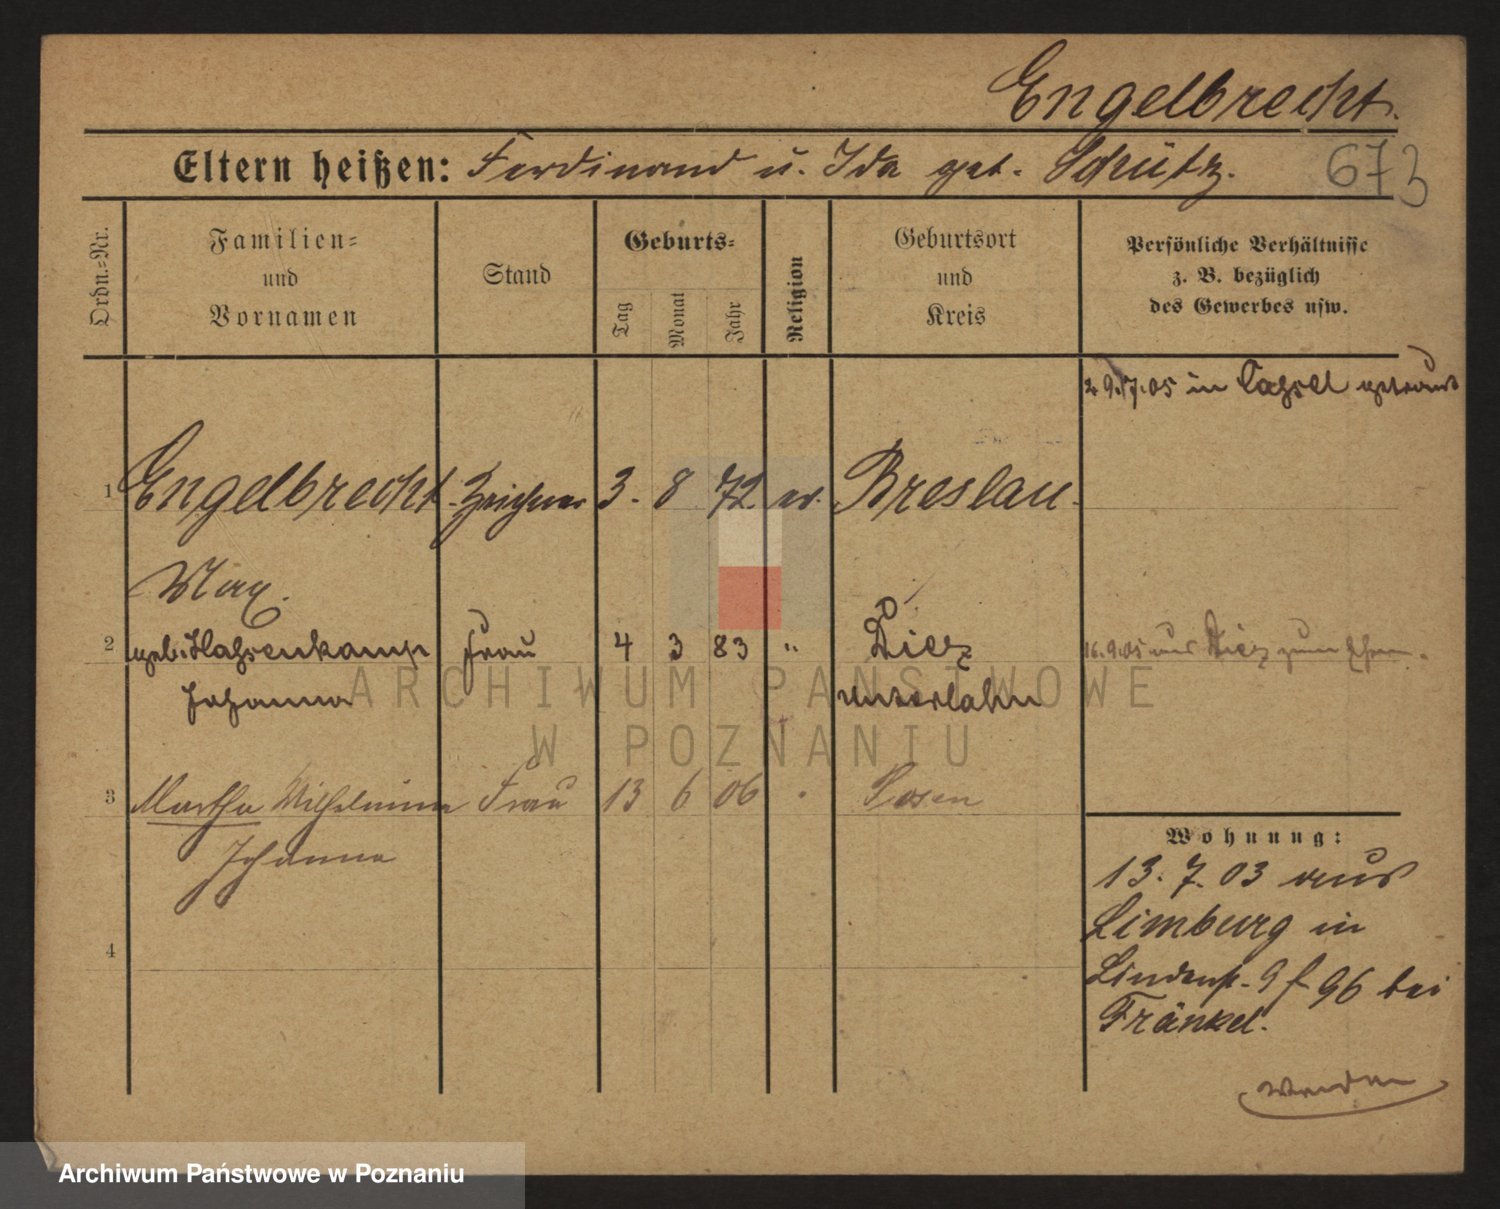 Engelbrecht.
Eltern heißen: Ferdinand u. Ida geb. Schütz.
673
Ordn.-Nr.
Familien-
und
Vornamen
Stand
Geburts-
Tag
Monat
Jahr
Religion
Geburtsort
und
Kreis
Persönliche Verhältnisse
z. B. bezüglich
des Gewerbes usw.
29.7.05 in Cassel getraut
1 Engelbrecht Zeichner 3. 8 72 ev. Breslau
Max.
2 geb. Hassenkamp Frau 4 3 83 " Diez
Johanna Unterlahn
16.9.05 aus Diez zum Ehem.
3 Martha Wilhelmine Frau 13 6 06 " Posen
Johanna
4
Wohnung:
13. 7. 03 aus
Limburg in
Lindenst. 9 f 96 bei
Fränkel.
ARCHIWUM PAŃSTWOWE
W POZNANIU
Archiwum Państwowe w Poznaniu